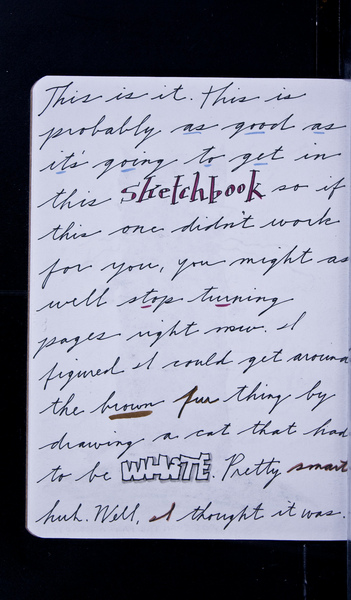 This is it. This is
probably as good as
it's going to get in
this sketchbook so if
this one didn't work
for you, you might as
well stop turning
pages right now. I
figured I could get around
the brown fur thing by
drawing a cat that had
to be WHITE. Pretty smart
huh. Well, I thought it was.